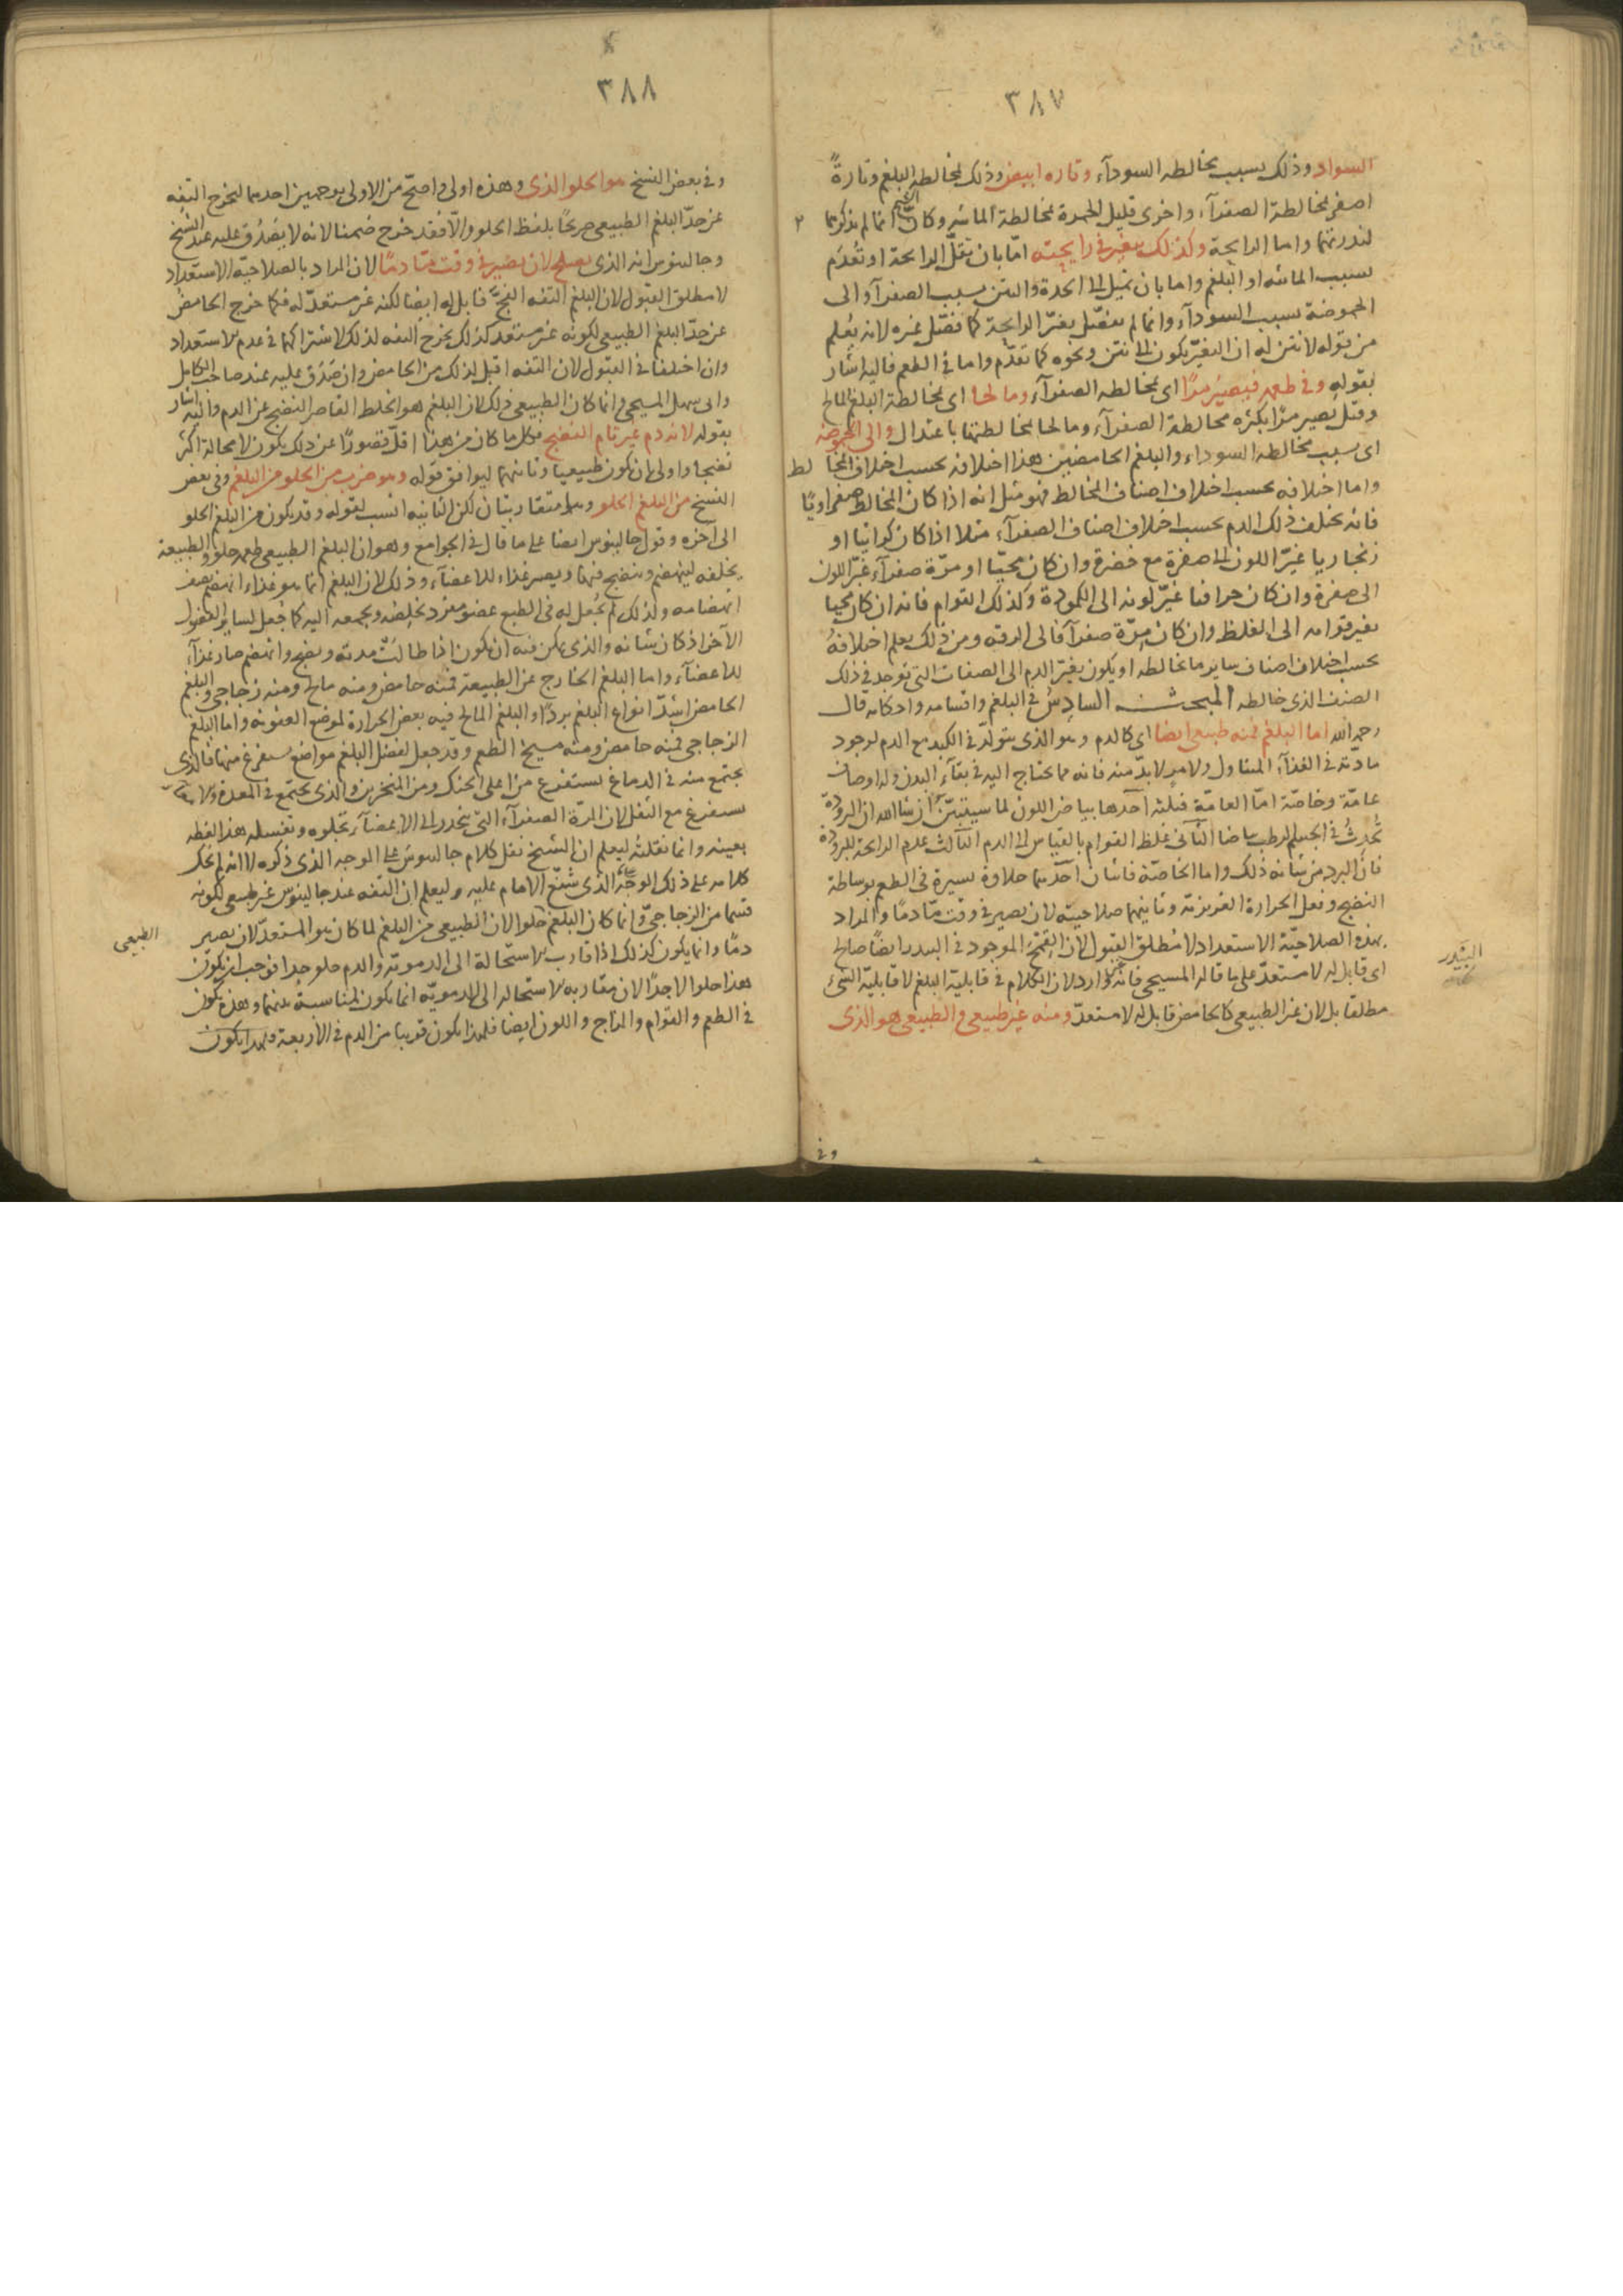 ٣٨٧
السواد وذلك بسبب مخالطه السودآء وتاره ابيض وذلك لمخالطه البلغم وتارةً
اصفر لمخالطة الصفرآء واخرى قليل الحمرة لمخالطة المائيه وكان الشيخ انما لم يذكرهما
لندرتهما واما الرايحة وكذلك يتغير فى رايحته امّا بان تقلّ الرايحة او تُعدَم
بسبب المائيه او البلغم واما بان تميل الى الحدة والنتن بسبب الصفرآء والى
الحموضة بسبب السودآء وانما لم يفصّل تغيّر الرايحة كما فصّل غيره لانه يُعلم
من قوله لا نتن له ان التغيّر يكون الى نتن ونحوه كما تقدّم واما فى الطعم فاليه اشار
بقوله وفى طعمه فيصير مرًّا اى لمخالطه الصفرآء ومالحا اى لمخالطة البلغم المالح
وقيل يصير مرًّا بكثره مخالطة الصفرآء ومالحا لمخالطتها باعتدال والى الحموضة
اى بسبب مخالطه السوداء والبلغم الحامضين هذا اختلافه بحسب اختلاف المخالط
واما اختلافه بحسب اختلاف اصناف المخالط فهو مثل انه اذا كان المخالط صفراويًا
فانه يختلف ذلك الدم بحسب اختلاف اصناف الصفرآء مثلا اذا كان كراثيا او
زنجاريا غيّر اللون الى صفرة مع خضرة وان كان محيّا او مرّة صفرآء غيّر اللون
الى صفرة وان كان حراقيا غيّر لونه الى الكمودة وكذلك القوام فانه ان كان محيا
يغير قوامه الى الغلظ وان كان مرّة صفرآء فالى الرقه ومن ذلك يعلم اختلافه
بحسب اختلاف اصناف ساير ما يخالطه او يكون يغيّر الدم الى الصفات التى توجد فى ذلك
الصنف الذى خالطه المبحث السادس فى البلغم واقسامه واحكامه قال
رحمه الله اما البلغم فمنه طبيعى ايضا اى كالدم وهو الذى يتولّد فى الكبد مع الدم لوجود
مادّته فى الغذآء المتناول ولامر لابدّ منه فانه مما يحتاج اليه فى بقآء البدن وله اوصاف
عامّة وخاصّة امّا العامّة فثلثه احدها بياض اللون لما سيتبيّن ان شا الله ان البرودة
تُحدِثُ فى الجسم الرطب بياضا الثانى غلظ القوام بالقياس الى الدم الثالث عدم الرايحة للبرودة
فان البرد من شانه ذلك واما الخاصّة فاثنان احدهما حلاوة يسيرة فى الطعم بوساطة
النضج وفعل الحرارة الغريزية وثانيهما صلاحيته لان يصير فى وقت مّا دمًا والمراد
بهذه الصلاحيّة الاستعداد لا مُطلق القبول لان القمح الموجود فى البيدر ايضًا صالح
اى قابل له لا مستعدّ على ما قاله المسيحى فانه غير وارد لان الكلام فى قابليّة البلغم لا قابليّة الشىء
مطلقا بل لان غير الطبيعى كالحامض قابل له لا مستعدّ ومنه غير طبيعى والطبيعى هو الذى
البَيْدر
وفى
٣٨٨
وفى بعض النسخ هو الحلو الذى وهذه اولى واصحّ من الاولى بوجهين احدهما ليخرج التفه
عن حدّ البلغم الطبيعى صريحًا بلفظ الحلو والّا فقد خرج ضمنا لانه لا يَصْدُق عليه عند الشيخ
وجالينوس انه الذى يصلح لان يصير فى وقت مّا دمًا لان المراد بالصلاحيّة الاستعداد
لا مطلق القبول لان البلغم التفه الفِجّ قابل له ايضا لكنه غير مستعدّ له فكما خرج الحامض
عن حدّ البلغم الطبيعى لكونه غير مستعد كذلك يخرج التفه لذلك لاشتراكهما فى عدم الاستعداد
وان اختلفا فى القبول لان التفه اقبل لذلك من الحامض وان صَدَق عليه عند صاحب الكامل
وابى سهل المسيحى وانما كان الطبيعى ذلك لان البلغم هو الخلط القاصر النضج عن الدم واليه اشار
بقوله لانه دم غير تام النضج فكل ما كان من هذا اقلّ قصورًا عن ذلك يكون لا محالة اكثر
نضجا واولى بان يكون طبيعيا وثانيهما ليوافق قوله وهو ضرب من الحلو من البلغم وفى بعض
النسخ من البلغم الحلو وهما متقاربتان لكن الثانيه انسب لقوله وقد يكون من البلغم الحلو
الى آخره وقول جالينوس ايضا على ما قال فى الجوامع وهو ان البلغم الطبيعى طعمه حلو والطبيعة
يخلفه لينهضم وينضج فيها ويصير غذاء للاعضآء وذلك لان البلغم انما هو غذاء انهضم نصف
انهضامه ولذلك لم يُجعل له فى الطبع عضو مفرد يجلبه ويجمعه اليه كما جُعل لساير الفضول
الآخر اذ كان شانه والذى يمكن فيه ان يكون اذا طالت مدته ونضج وانهضم صار غذآء
للاعضآء واما البلغم الخارج عن الطبيعة فمنه حامض ومنه مالح ومنه زجاجى والبلغم
الحامض اشدّ انواع البلغم بردًا والبلغم المالح فيه بعض الحرارة لموضع العفونه واما البلغم
الزجاجى فمنه حامض ومنه مسيخ الطعم وقد جعل لفضل البلغم مواضع يستفرغ منها فالذى
يجتمع منه فى الدماغ يستفرغ من اعلى الحنك ومن المنخرين والذى يجتمع فى المعدة والامعآء
يستفرغ مع الثفل لان المرّة الصفرآء التى ينحدر الى الامعآء تجلوه وتغسله هذا لفظه
بعينه وانما نقلته ليعلم ان الشيخ نقل كلام جالينوس على الوجه الذى ذكره لا انه لم يحك
كلامه على ذلك الوجه الذى شنّع الامام عليه وليعلم ان التفه عند جالينوس غير طبيعى لكونه
قسما من الزجاجىّ وانما كان البلغم حلوا لان الطبيعى من البلغم لما كان هو المستعدّ لان يصير
دمًا وانما يكون كذلك اذا قارب الاستحالة الى الدمويّه والدم حلو جدا فوجب ان يكون
هذا حلوا لا جدًا لان مقاربه الاستحاله الى الدمويّه انما يكون لمناسبة بينهما وهذه تكون
فى الطعم والقوام والمزاج واللون ايضا فلهذا يكون قريبا من الدم فى الاربعة ولهذا يكون
الطبيعى